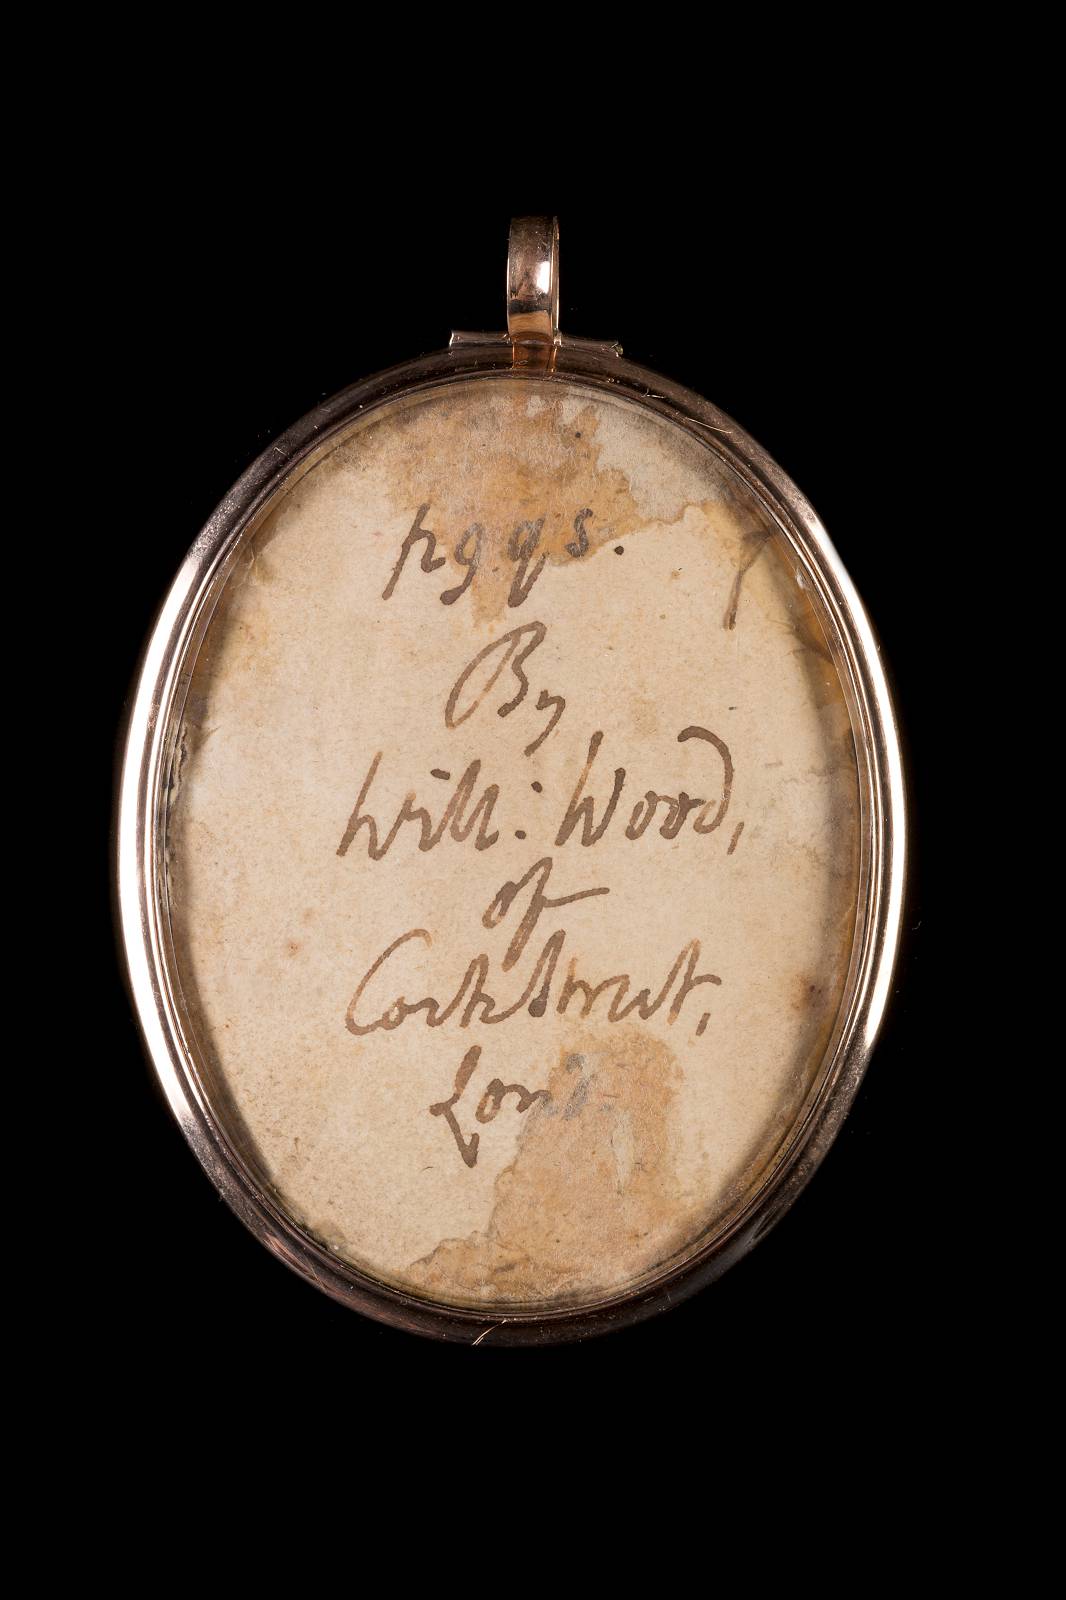 By
Will: Wood,
of
Cork Street,
Lond.